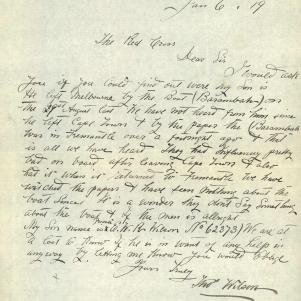 Jan 6. 19
The Red Cross
Dear Sir
I would ask
you if you could find out were my Son is
He left Melbourne by the Boat (Barambah) on
the Augst last We have not heard from him since
he left Cape Town & by the papers the (Barambah
was in Fremantle over a fourtnight ago & that
is all we have heard They had Influenza pretty
bad on board after leaving Cape Town & also
that it was returned to Fremantle We have
watched the papers & have seen nothing about the
boat since It is a wonder they dont Say Something
about the boat & if the men is allright
My Son name is W. R. Wilson No 62373) We are at
a Lost to know if he is in want of any help in
anyway by letting me Know you would oblige
Yours truly
Thos Wilson